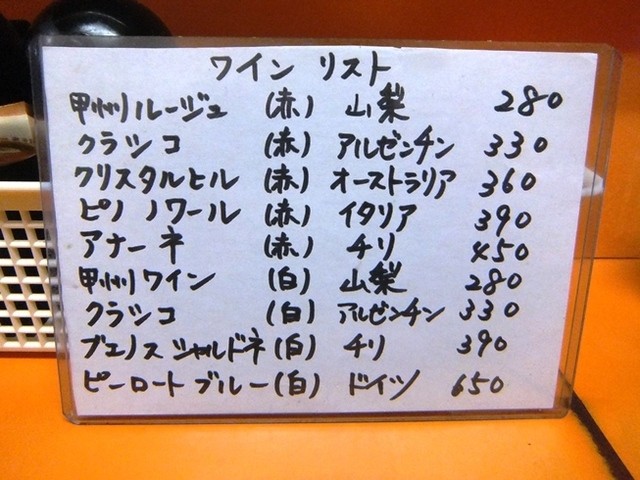 ワイン リスト
甲州ルージュ (赤) 山梨 280
クラシコ (赤) アルゼンチン 330
クリスタルヒル (赤) オーストラリア 360
ピノ ノワール (赤) イタリア 390
アナーネ (赤) チリ 450
甲州ワイン (白) 山梨 280
クラシコ (白) アルゼンチン 330
ブエノス シャルドネ (白) チリ 390
ピーロート ブルー (白) ドイツ 650